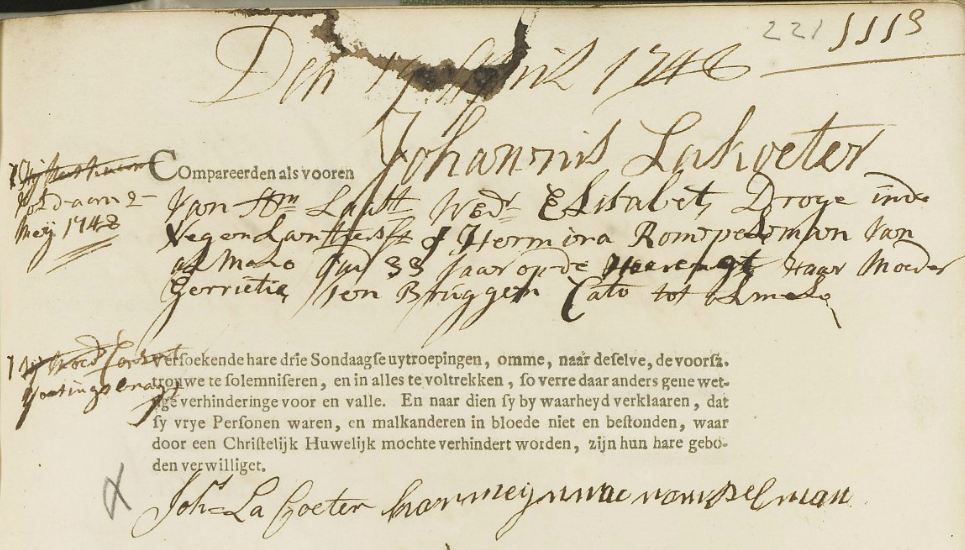 221 1113
Den 19 April 1748
Compareerden als vooren Johannis Lakoeter
Van Wedr Elisabet Droge inde
Negen & Hermina Rompelman Van
almalo Out 33 Jaar op de Haar Moeder
Gerrietie ten Bruggen Cato tot almelo
voldaan 2
Meij 1748
Versoekende hare drie Sondaagse uytroepingen, omme, naar deselve, de voorsz.
trouwe te solemniseren, en in alles te voltrekken, so verre daar anders gene wet-
tige verhinderinge voor en valle. En naar dien sy by waarheyd verklaaren, dat
sy vrye Personen waren, en malkanderen in bloede niet en bestonden, waar
door een Christelijk Huwelijk mochte verhindert worden, zijn hun hare gebo-
den verwilliget.
Johs La Coeter harmeijnna rompelman